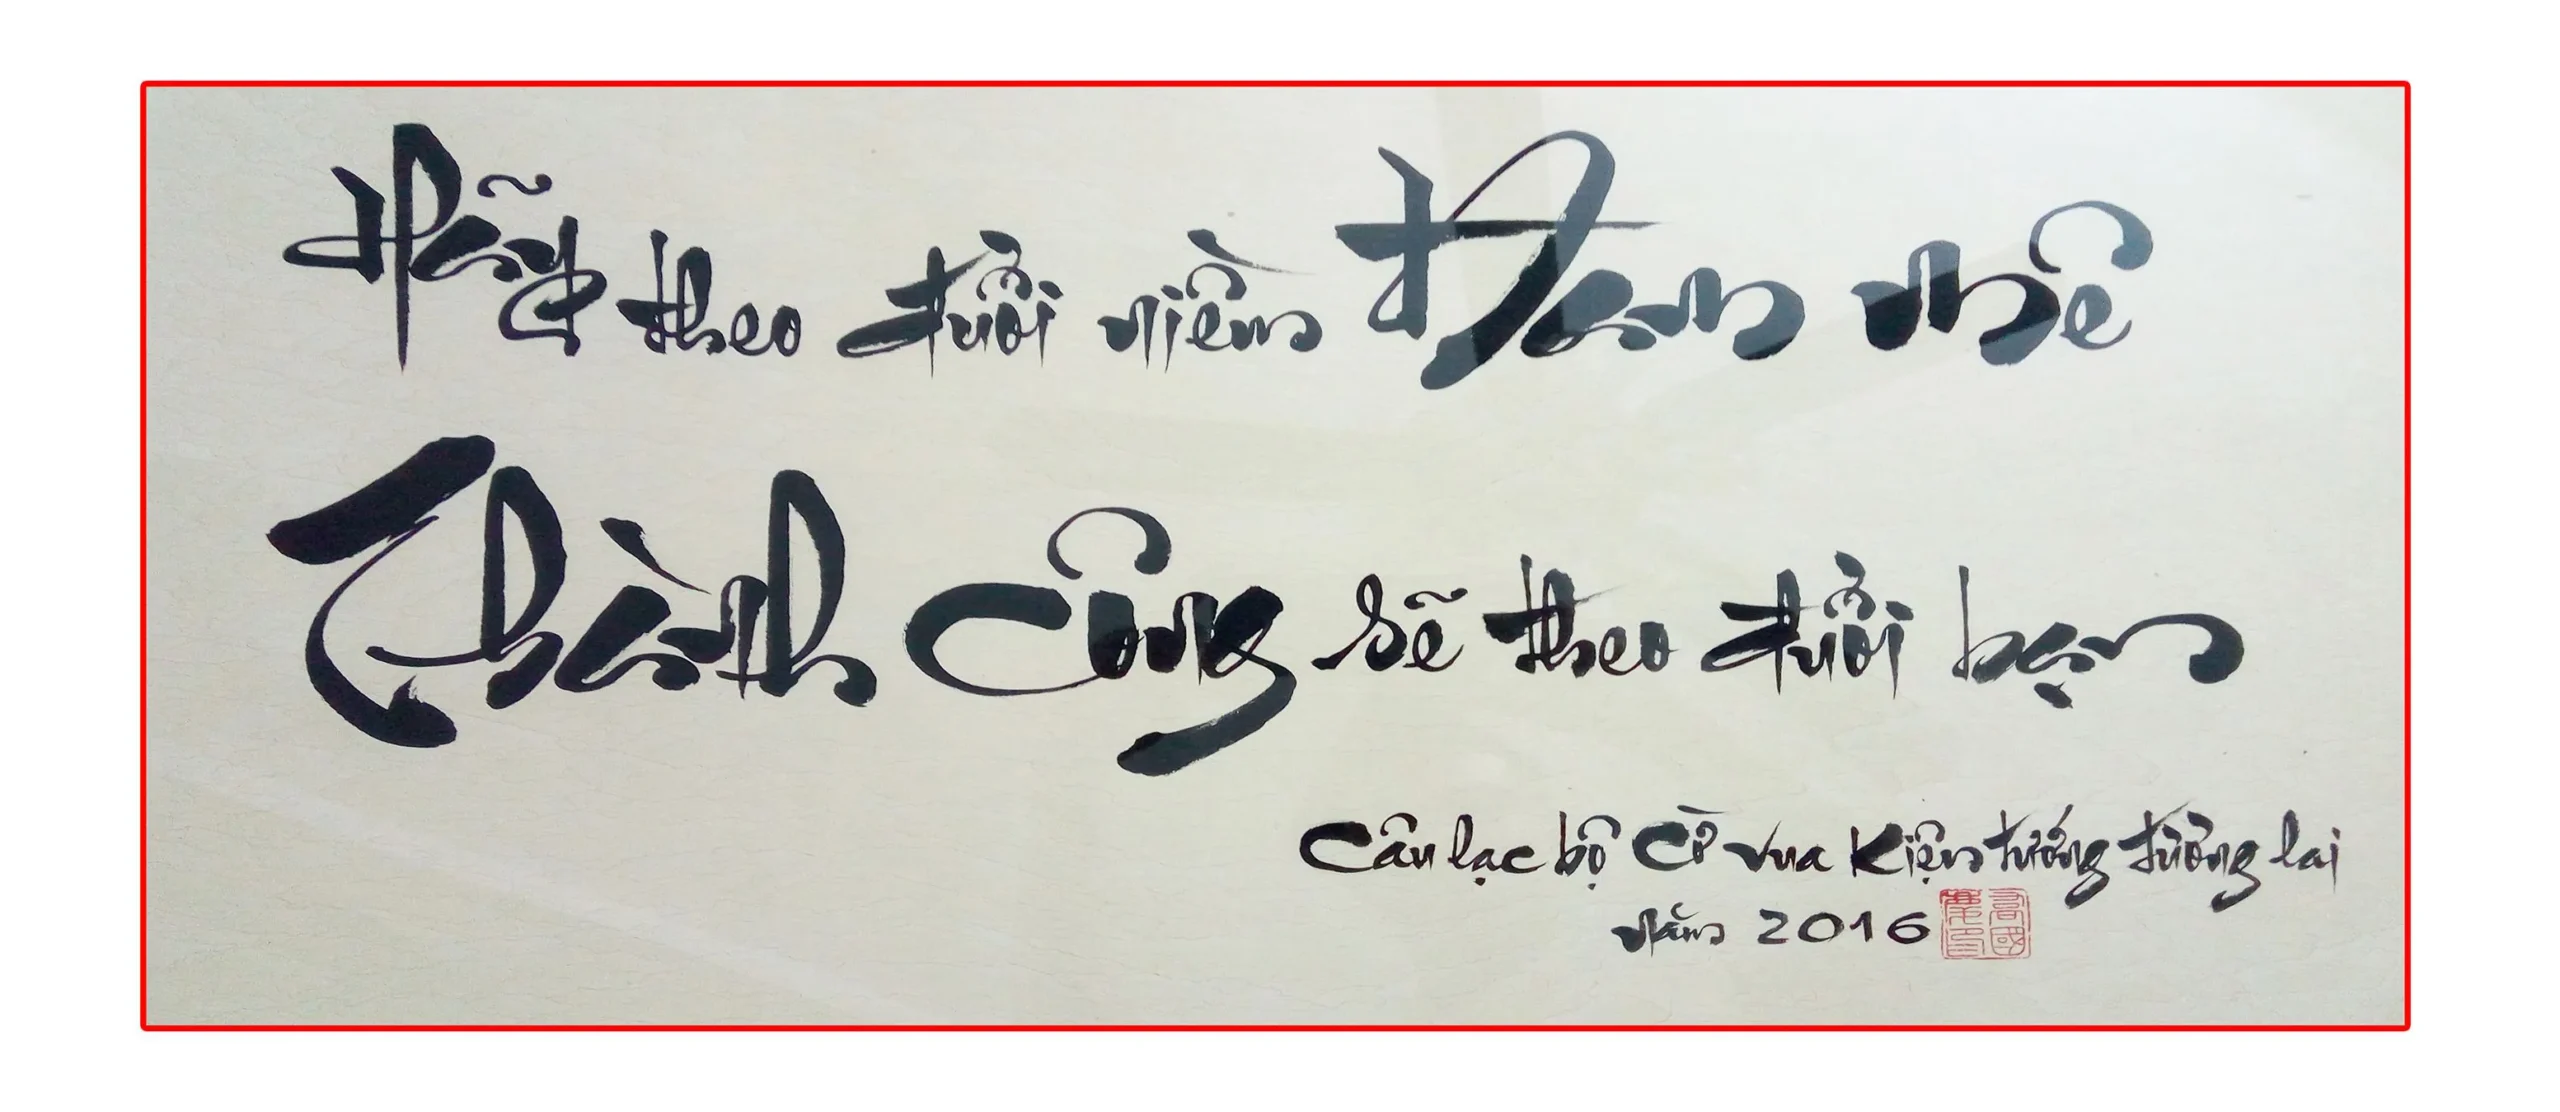 Hãy theo đuổi niềm Đam mê
Thành Công sẽ theo đuổi bạn
Câu lạc bộ Cờ vua Kiện tướng tương lai
năm 2016